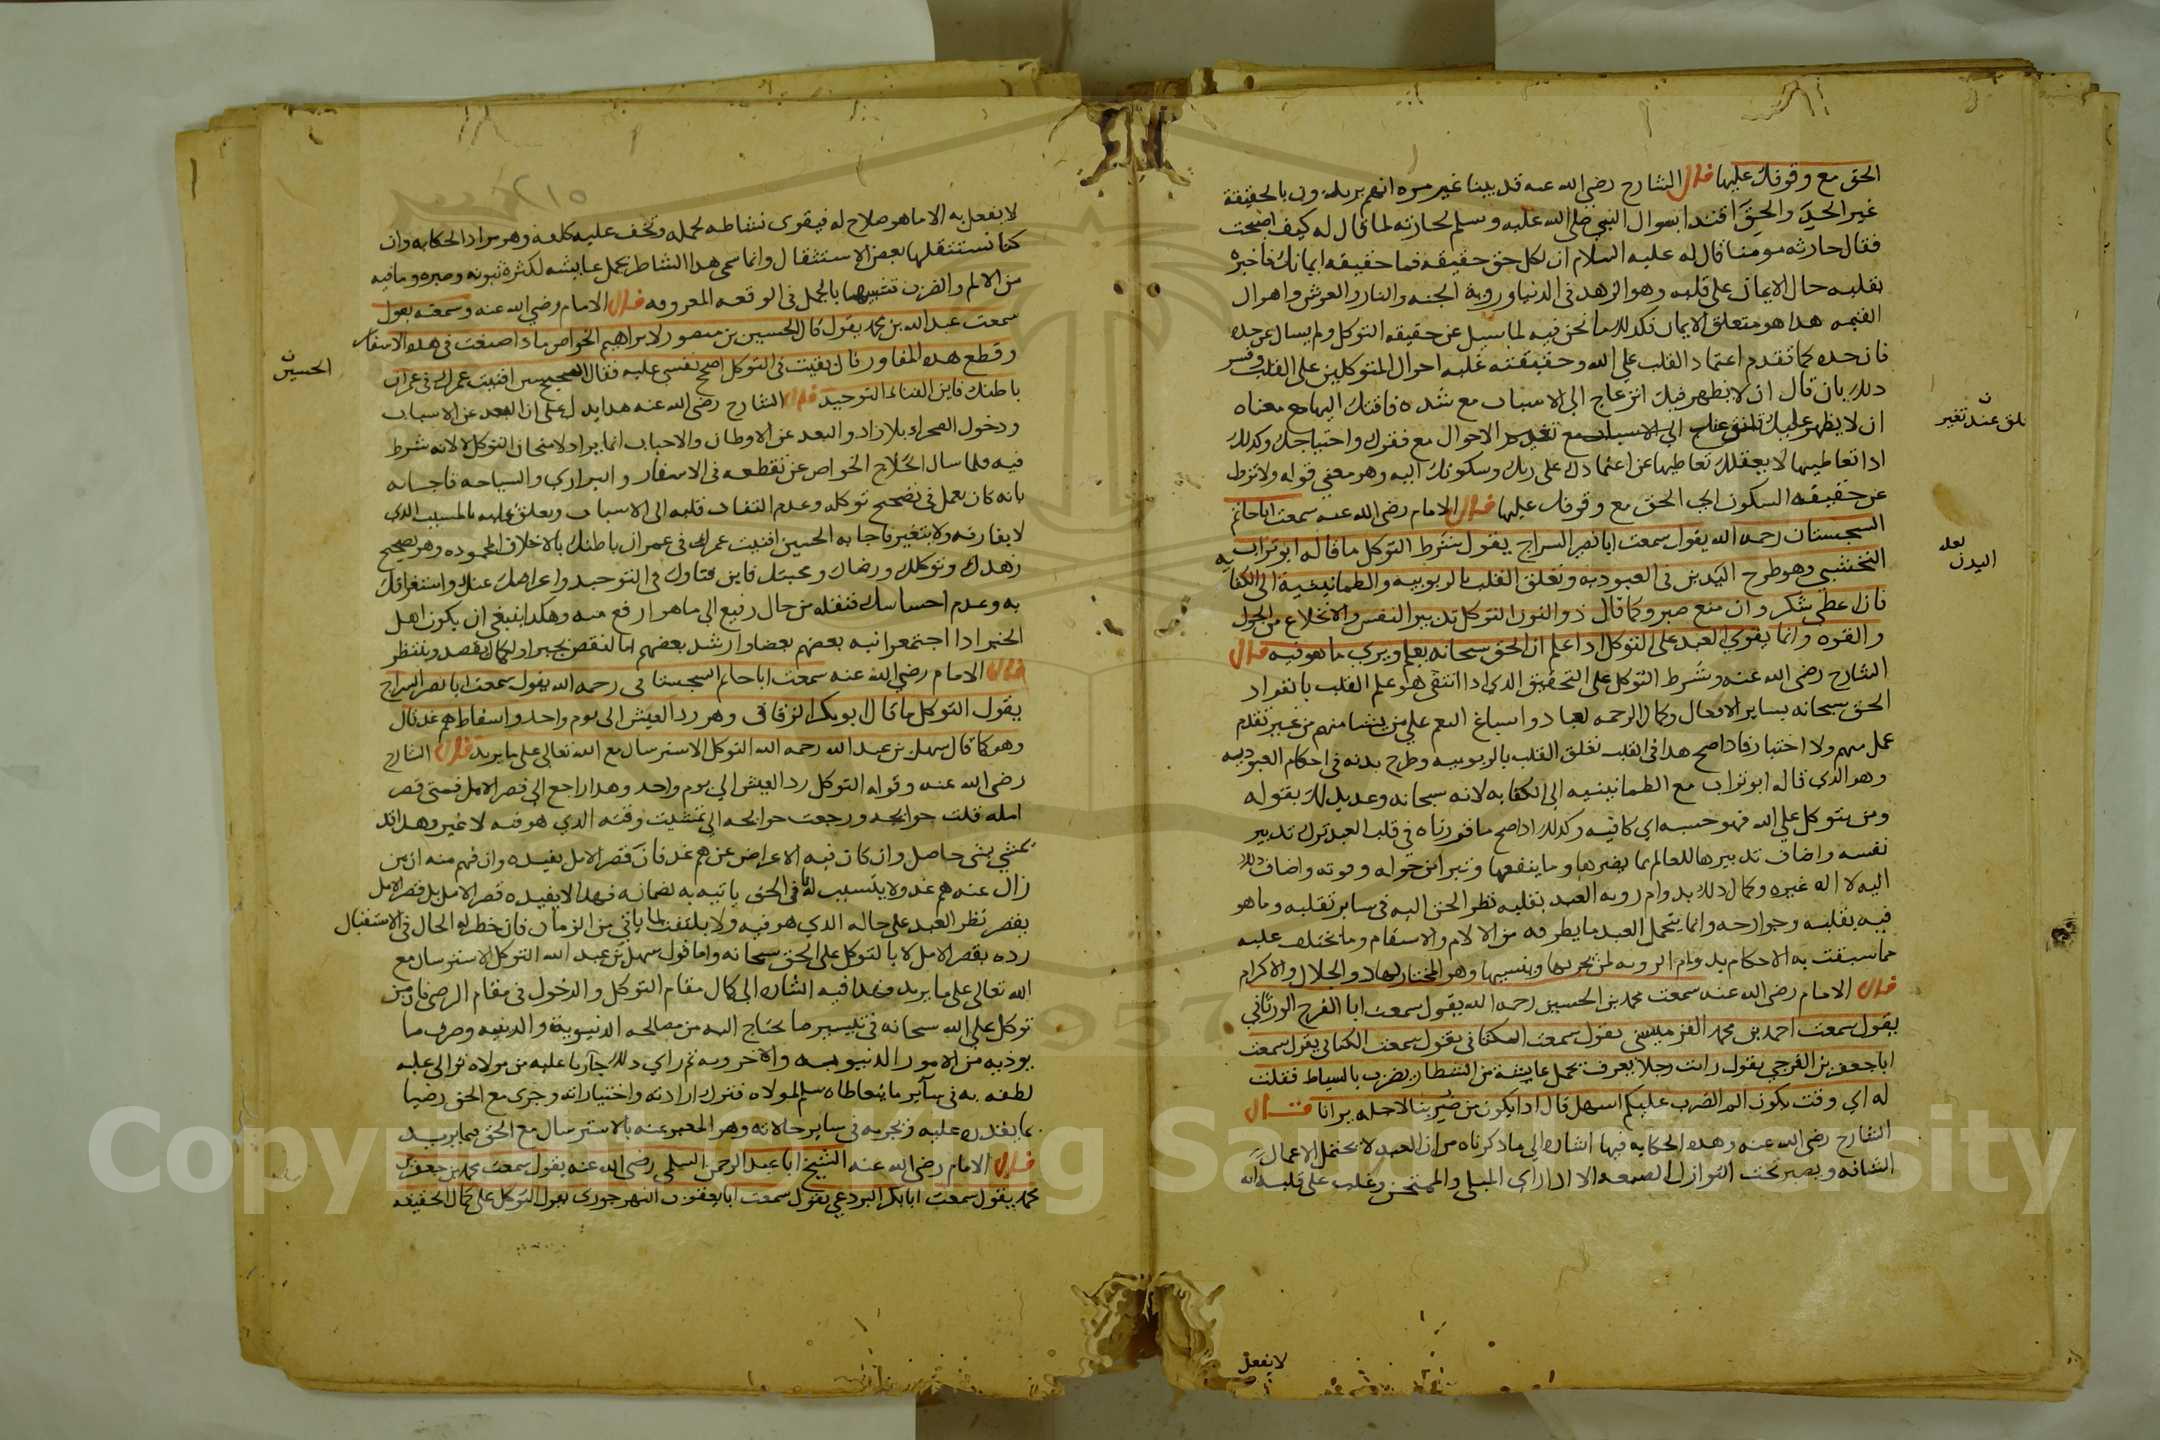 الحق مع وقوفك عليها قال الشارح رضي الله عنه قد بينا غير مره انهم يريدون بالحقيقة
غير الحد والحق اقتدا بسوال النبي صلى الله عليه وسلم لحارثه لما قال له كيف اصبحت
فقال حارثه مومنا قال له عليه السلام ان لكل حق حقيقه فما حقيقه ايمانك فاخبره
بغلبه حال الايمان على قلبه وهو الزهد في الدنيا وروية الجنه والنار والعرش واهوال
القيمه هذا هو متعلق الايمان فكذلك ما نحن فيه لما سيل عن حقيقه التوكل ولم يسال عن حده
فان حده كما تقدم اعتماد القلب على الله وحقيقته غلبه احوال المتوكلين على القلب وفسر
ذلك بان قال ان لا يظهر فيك انزعاج الى الاسباب مع شده فاقتك اليها مع معناه
ان لا يظهر عليك الى الاسباب مع الاحوال مع فقرك واحتياجك وكذلك
اذا تعاطيتها لا يعقلك تعاطيها عن اعتمادك على ربك وسكونك اليه وهو معنى قوله ولا تزول
عن حقيقه السكون الى الحق مع وقوفك عليها قال الامام رضي الله عنه سمعت ابا حاتم
السجستاني رحمه الله يقول سمعت ابا نصر السراج يقول شرط التوكل ما قاله ابو تراب
النخشبي وهو طرح البدن في العبوديه وتعلق القلب بالربوبيه والطمانينية الى الكفايه
فان اعطي شكر وان منع صبر وكما قال ذو النون التوكل تدبير النفس والانخلاع من الحول
والقوه وانما يقوى العبد على التوكل اذا علم ان الحق سبحانه يعلم ويرى ما هو فيه قال
الشارح رضي الله عنه وشرط التوكل على التحقيق الذي اذا انتفى هو علم القلب بانفراد
الحق سبحانه بساير الافعال وكمال الرحمه لعباده واسباغ النعم على من يشا منهم من غير تقدم
عمل منهم ولا اختيار فاذا صح هذا في القلب تعلق القلب بالربوبيه وطرح بدنه في احكام العبوديه
وهو الذي قاله ابو تراب مع الطمانينيه الى الكفايه لانه سبحانه وعد بذلك بقوله
ومن يتوكل على الله فهو حسبه اي كافيه وكذلك اذا صح ما قررناه في قلب العبد ترك تدبير
نفسه واضاف تدبيرها للعالم بما يضرها وما ينفعها وتبرا من حوله وقوته واضاف ذلك
اليه لا اله غيره وكمال ذلك بدوام رويه العبد بقلبه نظر الحق اليه في ساير تقلبه وما هو
فيه بقلبه وجوارحه وانما يتحمل العبد ما يطرقه من الالام والاسقام وما يختلف عليه
مما سبقت به الاحكام بدوام الرويه لمن يجريها وينسيها وهو المختار لها ذو الجلال والاكرام
قال الامام رضي الله عنه سمعت محمد بن الحسين رحمه الله يقول سمعت ابا الفرج الورثاني
يقول سمعت احمد بن محمد القرميسيني يقول سمعت الكتاني يقول سمعت الكتاني يقول سمعت
ابا جعفر بن الفرجي يقول رايت رجلا يعرف بجمل عايشة من الشطار يضرب بالسياط فقلت
له اي وقت يكون الم الضرب عليكم اسهل قال اذا يكون من ضربنا لاجله يرانا قال
الشارح رضي الله عنه وهذه الحكايه فيها اشاره الى ما ذكرناه من ان العبد لا يحتمل الاعمال
الشاقه ويصبر تحت النوازل الصعبه الا اذا راى المبلي والممتحن وغلب على قلبه انه
قلق عند تغير
لعله
البدن
لا يفعل
لا يفعل به الا ما هو صلاح له فيقوى نشاطه لحمله وتخف عليه كلفه وهو مراد الحكايه وان
كنا نستثقلها بعض الاستثقال وانما سمي هذا الشاطر بجمل عايشه لكثرة ثبوته وصبره وما فيه
من الالم والضرب تشبيها بالجمل في الوقعه المعروفه قال الامام رضي الله عنه وسمعته يقول
سمعت عبد الله بن محمد يقول قال الحسين بن منصور لابراهيم الخواص ماذا صنعت في هذه الاسفار
وقطع هذه المفاوز قال بقيت في التوكل اصحح نفسي عليه فقال افنيت عمرك في عمران
باطنك فاين الفناء التوحيد قال الشارح رضي الله عنه هذا يدل على ان البعد عن الاسباب
ودخول الصحراء بلا زاد والبعد عن الاوطان والاحباب انما يراد لامتحان التوكل لا لانه شرط
فيه فلما سال الحلاج الخواص عن تقطعه في الاسفار والبراري والسياحه فاجابه
بانه كان يعمل في تصحيح توكله وعدم التفات قلبه الى الاسباب وتعلق قلبه بالمسبب الذي
لا يفارقه ولا يتغير فاجابه الحسين افنيت عمرك في عمران باطنك بالاخلاق المحموده وهو تصحيح
زهدك وتوكلك ورضاك ومحبتك فاين فناوك في التوحيد واعراضك عنك واستغراقك
به وعدم احساسك فنقله من حال رفيع الى ما هو ارفع منه وهكذا ينبغي ان يكون اهل
الخير اذا اجتمعوا نبه بعضهم بعضا وارشد بعضهم اما لنقص يجبر او لكمال يقصد وينتظر
قال الامام رضي الله عنه سمعت ابا حاتم السجستاني رحمه الله يقول سمعت ابا نصر السراج
يقول التوكل ما قال ابو بكر الزقاقي وهو رد العيش الى يوم واحد واسقاط هم غد قال
وهو كما قال سهل بن عبد الله رحمه الله التوكل الاسترسال مع الله تعالى على ما يريد قال الشارح
رضي الله عنه وقوله التوكل رد العيش الى يوم واحد وهذا راجع الى قصر الامل فمتى قصر
امله قلت حوايجه ورجعت حوايجه الى تمشيت وقته الذي هو فيه لا غير وهذا قد
يمشي بشي حاصل وان كان فيه الاعراض عن هم غد فان قصر الامل يفيده وان فهم منه ان من
زال عنه هم غد ولا يتسبب لما في الحق ياتيه به لضمانه فهذا لا يفيده قصر الامل بل قصر الامل
يقصر نظر العبد على حاله الذي هو فيه ولا يلتفت لما ياتي من الزمان فان خطر له الحال في الاستقبال
رده بقصر الامل لا بالتوكل على الحق سبحانه واما قول سهل بن عبد الله التوكل الاسترسال مع
الله تعالى على ما يريد فهذا فيه اشاره الى كمال مقام التوكل والدخول في مقام الرضى فان من
توكل على الله سبحانه في تيسير ما يحتاج اليه من مصالحه الدنيوية والدينيه وصرف ما
يوذيه من الامور الدنيويه والاخرويه ثم راى ذلك جاريا عليه من مولاه توالى عليه
لطفه به في ساير ما يتعاطاه سلم لمولاه فترك ارادته واختياراته وجرى مع الحق رضيا
بما يقدره عليه ويجريه في ساير حالاته وهو المعبر عنه بالاسترسال مع الحق فيما يريد
قال الامام رضي الله عنه الشيخ ابا عبد الرحمن السلمي رضي الله عنه يقول سمعت محمد بن جعفر بن
محمد يقول سمعت ابا بكر البردعي يقول سمعت ابا يعقوب النهرجوري يقول التوكل على كمال الحقيقه
الحسين
Copyright © King Saud University
1957